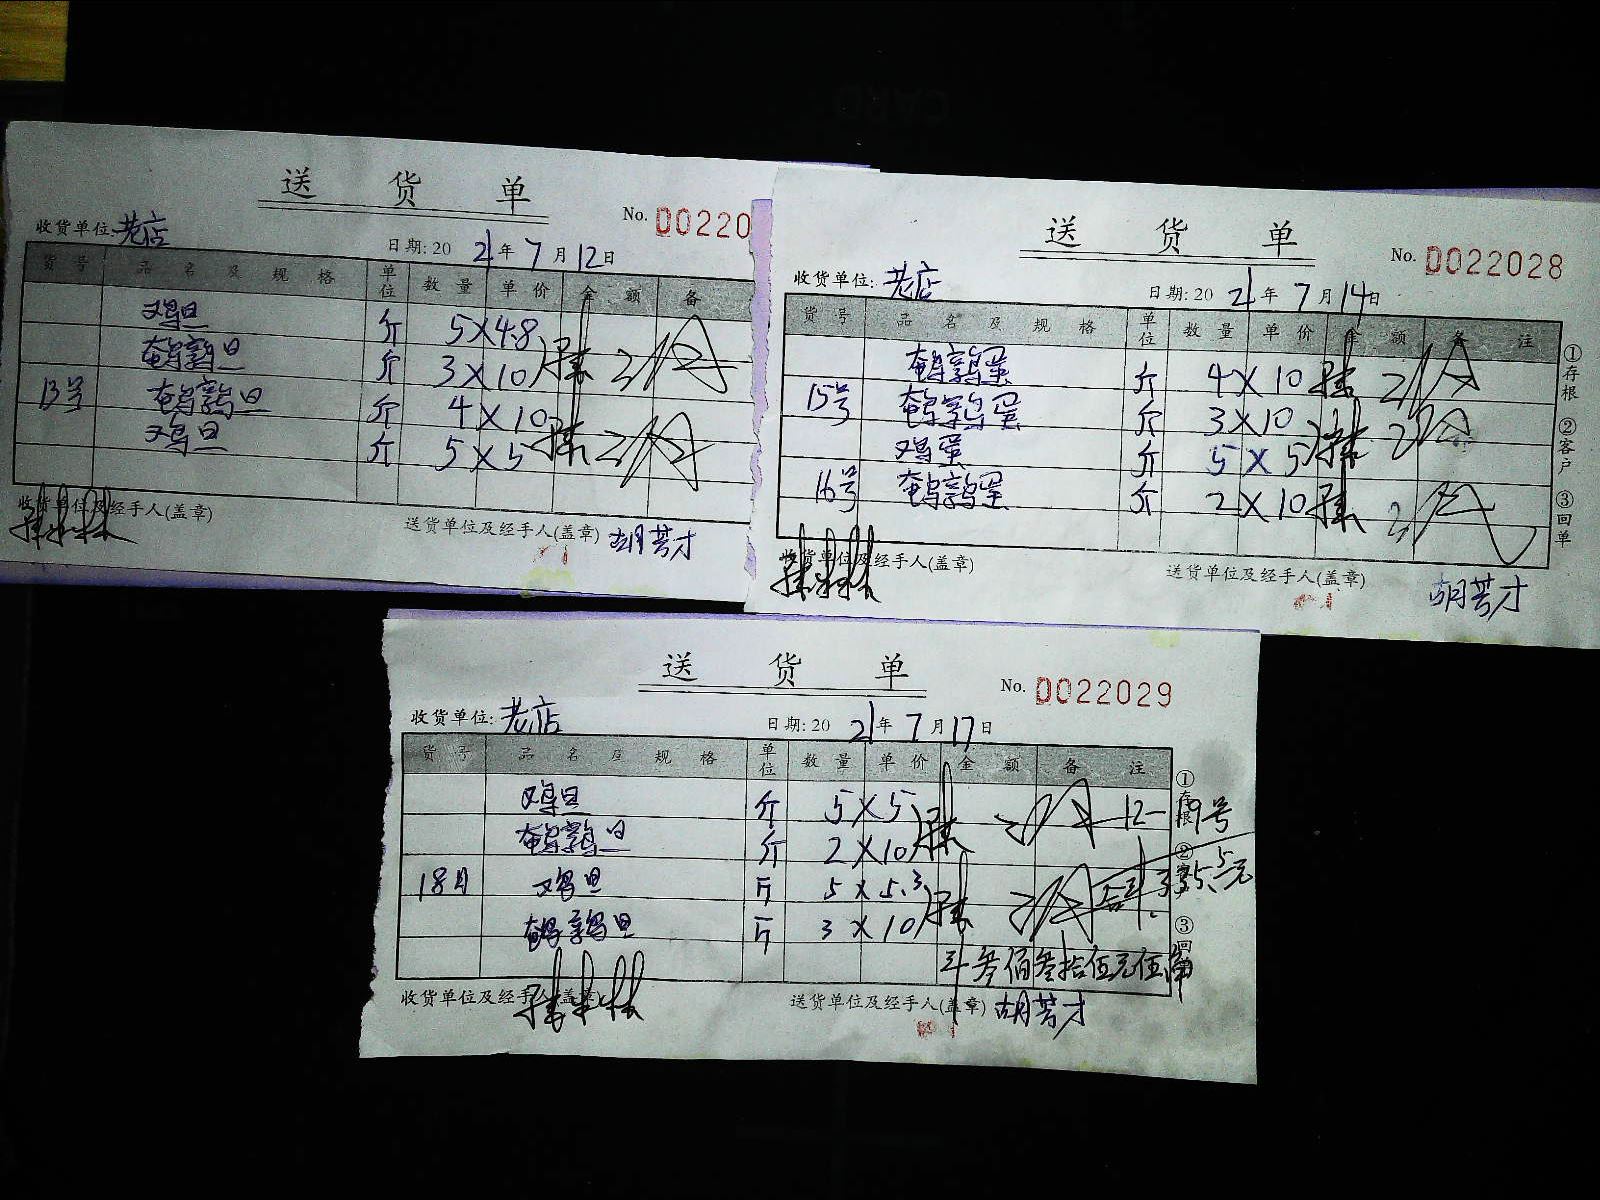 送 货 单
No. D00220
收货单位: 老店
日期: 20 21 年 7 月 12 日
货 号 品 名 及 规 格 单位 数 量 单 价 金 额 备
鸡旦 斤 5×4.8
鹌鹑旦 斤 3×10
13号 鹌鹑旦 斤 4×10
鸡旦 斤 5×5
收货单位及经手人(盖章)
送货单位及经手人(盖章) 胡芳才
送 货 单
No. D022028
收货单位: 老店
日期: 20 21 年 7 月 14 日
货 号 品 名 及 规 格 单位 数 量 单 价 金 额 备 注
鹌鹑蛋 斤 4×10
15号 鹌鹑蛋 斤 3×10
鸡蛋 斤 5×5
16号 鹌鹑蛋 斤 2×10
①存根 ②客户 ③回单
收货单位及经手人(盖章)
送货单位及经手人(盖章) 胡芳才
送 货 单
No. D022029
收货单位: 老店
日期: 20 21 年 7 月 17 日
货 号 品 名 及 规 格 单位 数 量 单 价 金 额 备 注
鸡旦 斤 5×5 12—19号
鹌鹑旦 斤 2×10
18日 鸡旦 斤 5×5.3 合计 335.5元
鹌鹑旦 斤 3×10
叁佰叁拾伍元伍角
①存根 ②客户 ③回单
收货单位及经手人(盖章)
送货单位及经手人(盖章) 胡芳才